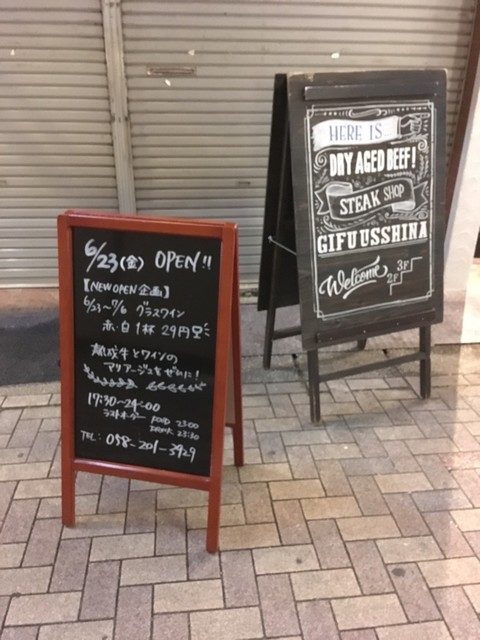 6/23(金) OPEN!!
【NEW OPEN 企画】
6/23〜7/6 グラスワイン
赤・白 1杯 29円
熟成牛とワインの
マリアージュをぜひに!
17:30〜24:00
ラストオーダー FOOD 23:00
DRINK 23:30
TEL: 058-201-3929
HERE IS
DRY AGED BEEF!
STEAK SHOP
GIFU USSHINA
Welcome
3F
2F